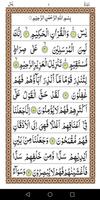 بِسْمِ اللّٰهِ الرَّحْمٰنِ الرَّحِيْمِ
يٰسٓ وَالْقُرْاٰنِ الْحَكِيْمِ
اِنَّكَ لَمِنَ الْمُرْسَلِيْنَ عَلٰى صِرَاطٍ
مُّسْتَقِيْمٍ تَنْزِيْلَ الْعَزِيْزِ الرَّحِيْمِ
لِتُنْذِرَ قَوْمًا مَّاۤ اُنْذِرَ اٰبَآؤُهُمْ فَهُمْ
غٰفِلُوْنَ لَقَدْ حَقَّ الْقَوْلُ عَلٰٓى
اَكْثَرِهِمْ فَهُمْ لَا يُؤْمِنُوْنَ اِنَّا جَعَلْنَا
فِيْۤ اَعْنَاقِهِمْ اَغْلٰلًا فَهِيَ اِلَى الْاَذْقَانِ
فَهُمْ مُّقْمَحُوْنَ وَجَعَلْنَا مِنْۢ بَيْنِ
اَيْدِيْهِمْ سَدًّا وَّمِنْ خَلْفِهِمْ سَدًّا
فَاَغْشَيْنٰهُمْ فَهُمْ لَا يُبْصِرُوْنَ